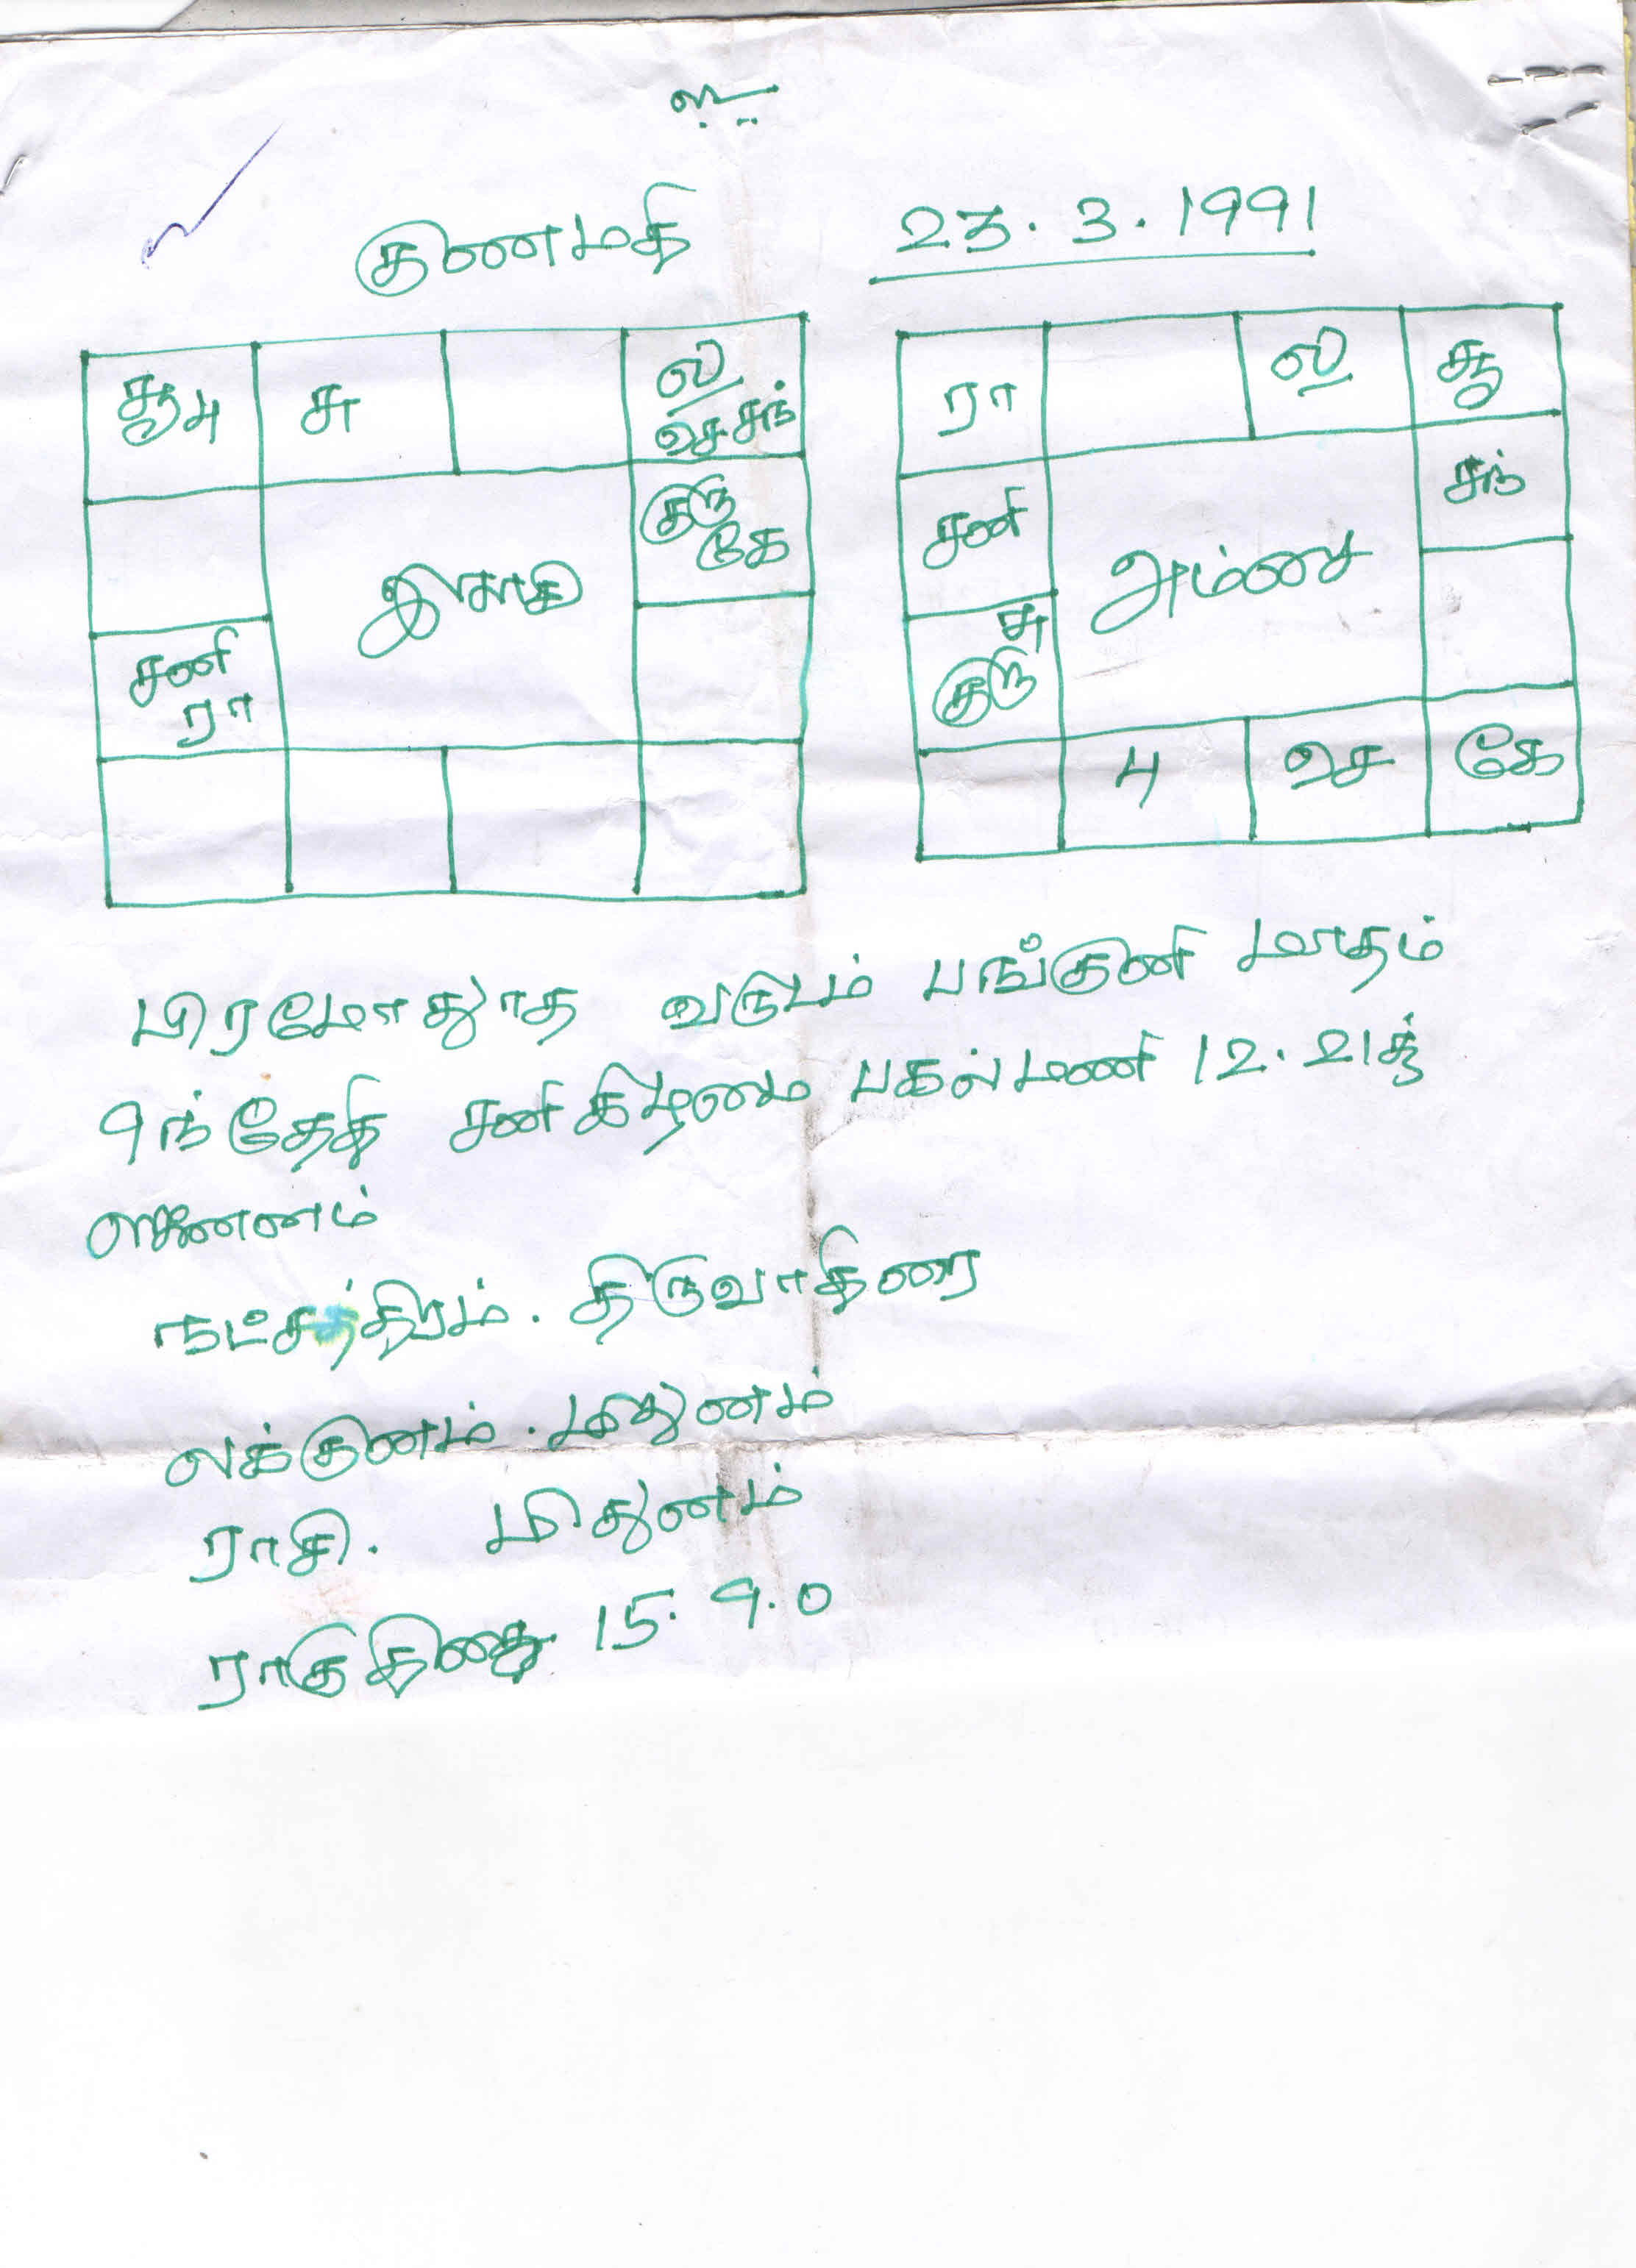 உ
குணமதி 23.3.1991
சூ பு சு ல
செ சந்
குரு
கே
இராசி
சனி
ரா
ரா ல சூ
சந்
சனி அம்சை
சு
குரு
பு செ கே
பிரமோதூத வருடம் பங்குனி மாதம்
9ந்தேதி சனிகிழமை பகல்மணி 12.21க்கு
ஜனனம்
நட்சத்திரம். திருவாதிரை
லக்குனம். மிதுனம்
ராசி. மிதுனம்
ராகு திசை 15.9.0